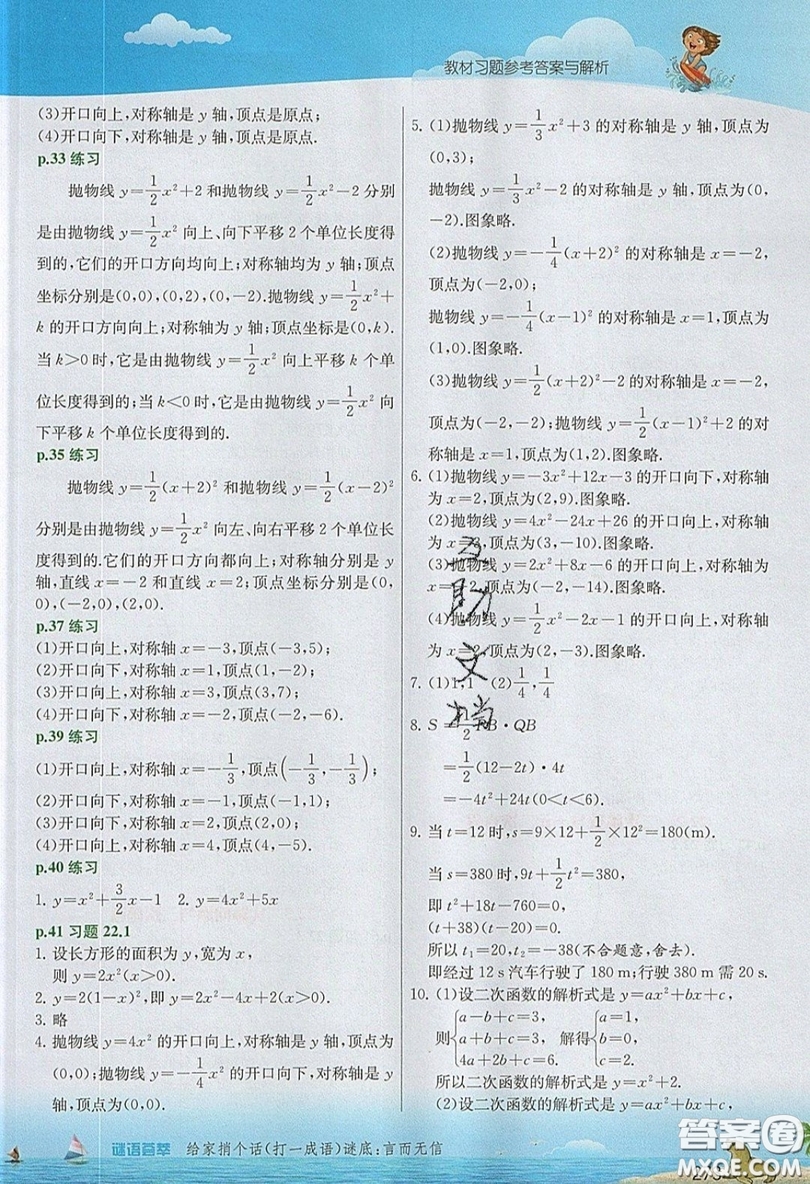 教材习题参考答案与解析
(3)开口向上,对称轴是 y 轴,顶点是原点;
(4)开口向下,对称轴是 y 轴,顶点是原点.
p.33 练习
抛物线 y=1/2x²+2 和抛物线 y=1/2x²-2 分别
是由抛物线 y=1/2x² 向上、向下平移 2 个单位长度得
到的,它们的开口方向均向上;对称轴均为 y 轴;顶点
坐标分别是(0,0),(0,2),(0,-2).抛物线 y=1/2x²+
k 的开口方向向上;对称轴为 y 轴;顶点坐标是(0,k).
当 k>0 时,它是由抛物线 y=1/2x² 向上平移 k 个单
位长度得到的;当 k<0 时,它是由抛物线 y=1/2x² 向
下平移 k 个单位长度得到的.
p.35 练习
抛物线 y=1/2(x+2)² 和抛物线 y=1/2(x-2)²
分别是由抛物线 y=1/2x² 向左、向右平移 2 个单位长
度得到的.它们的开口方向都向上;对称轴分别是 y
轴,直线 x=-2 和直线 x=2;顶点坐标分别是(0,
0),(-2,0),(2,0).
p.37 练习
(1)开口向上,对称轴 x=-3,顶点(-3,5);
(2)开口向下,对称轴 x=1,顶点(1,-2);
(3)开口向上,对称轴 x=3,顶点(3,7);
(4)开口向下,对称轴 x=-2,顶点(-2,-6).
p.39 练习
(1)开口向上,对称轴 x=-1/3,顶点(-1/3,-1/3);
(2)开口向下,对称轴 x=-1,顶点(-1,1);
(3)开口向下,对称轴 x=2,顶点(2,0);
(4)开口向上,对称轴 x=4,顶点(4,-5).
p.40 练习
1. y=x²+3/2x-1 2. y=4x²+5x
p.41 习题 22.1
1. 设长方形的面积为 y,宽为 x,
则 y=2x²(x>0).
2. y=2(1-x)²,即 y=2x²-4x+2(x>0).
3. 略
4. 抛物线 y=4x² 的开口向上,对称轴是 y 轴,顶点为
(0,0);抛物线 y=-1/4x² 的开口向下,对称轴是 y
轴,顶点为(0,0).
5. (1)抛物线 y=1/3x²+3 的对称轴是 y 轴,顶点为
(0,3);
抛物线 y=1/3x²-2 的对称轴是 y 轴,顶点为(0,
-2).图象略.
(2)抛物线 y=-1/4(x+2)² 的对称轴是 x=-2,
顶点为(-2,0);
抛物线 y=-1/4(x-1)² 的对称轴是 x=1,顶点为
(1,0).图象略.
(3)抛物线 y=1/2(x+2)²-2 的对称轴是 x=-2,
顶点为(-2,-2);抛物线 y=1/2(x-1)²+2 的对
称轴是 x=1,顶点为(1,2).图象略.
6. (1)抛物线 y=-3x²+12x-3 的开口向下,对称轴
为 x=2,顶点为(2,9).图象略.
(2)抛物线 y=4x²-24x+26 的开口向上,对称轴
为 x=3,顶点为(3,-10).图象略.
(3)抛物线 y=2x²+8x-6 的开口向上,对称轴为
x=,顶点为(-2,-14).图象略.
(4)抛物线 y=1/2x²-2x-1 的开口向上,对称轴
为 x=,顶点为(2,-3).图象略.
7. (1)1,1 (2)1/4,1/4
8. S=1/2PB·QB
=1/2(12-2t)·4t
=-4t²+24t(0<t<6).
9. 当 t=12 时,s=9×12+1/2×12²=180(m).
当 s=380 时,9t+1/2t²=380,
即 t²+18t-760=0,
(t+38)(t-20)=0.
所以 t₁=20,t₂=-38(不合题意,舍去).
即经过 12 s 汽车行驶了 180 m;行驶 380 m 需 20 s.
10. (1)设二次函数的解析式是 y=ax²+bx+c,
则{a-b+c=3, a+b+c=3, 4a+2b+c=6. 解得{a=1, b=0, c=2.
所以二次函数的解析式是 y=x²+2.
(2)设二次函数的解析式是 y=ax²+bx+c,
互助文档
谜语荟萃 给家捎个话(打一成语)谜底:言而无信
答案圈
MXQE.COM